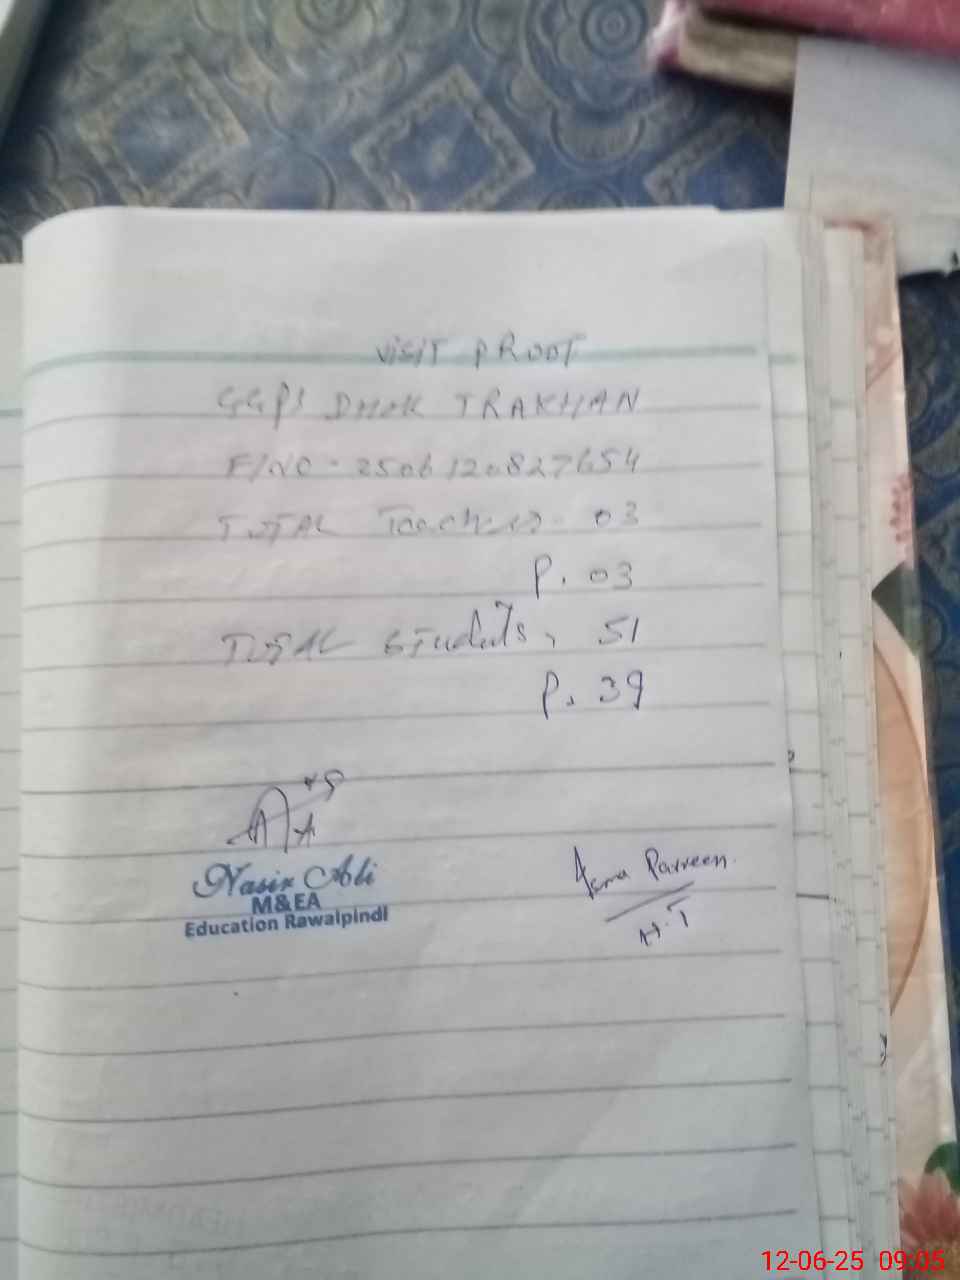 VISIT PROOF
GGPS DHOK TRAKHAN
F/NO - 2506120827654
TOTAL Teachers. 03
P. 03
TOTAL Students, 51
P. 39
Nasir Ali
M&EA
Education Rawalpindi
Asma Parveen.
H.T
12-06-25 09:05